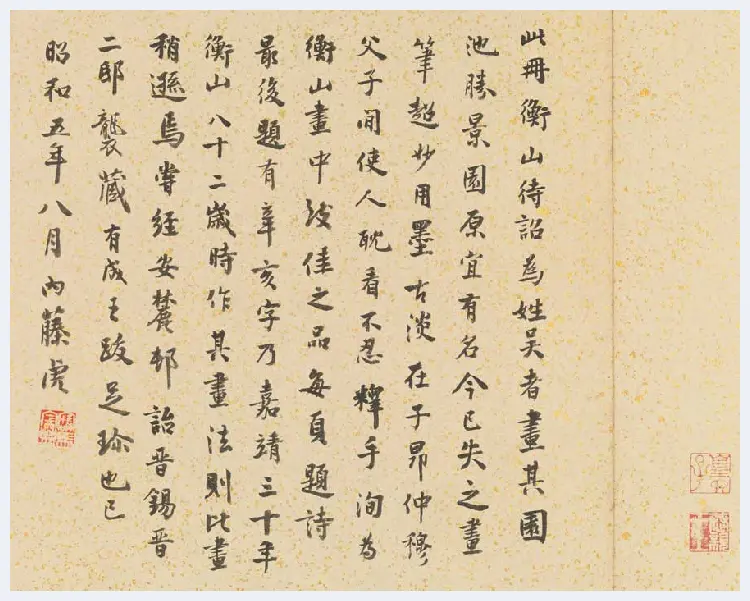 此冊衡山待詔為姓吳者畫其園
池勝景園原宜有名今已失之畫
筆超妙用墨古淡在子昂仲穆
父子間使人耽看不忍釋手洵為
衡山畫中絕佳之品每頁題詩
最後題有辛亥字乃嘉靖三十年
衡山八十二歲時作其畫法則比畫
稍遜焉嘗經安麓邨詒晉錫晉
二邸襲藏有成王跋足珍也已
昭和五年八月內藤虎